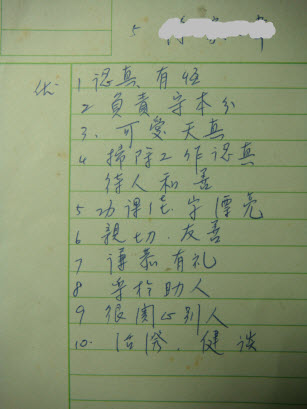 5
优
1 認真有恆
2 負責守本分
3. 可愛天真
4 掃除工作認真
待人和善
5 功課佳 字漂亮
6 親切.友善
7 謙恭有礼
8 樂於助人
9 很関心別人
10. 活潑.健談